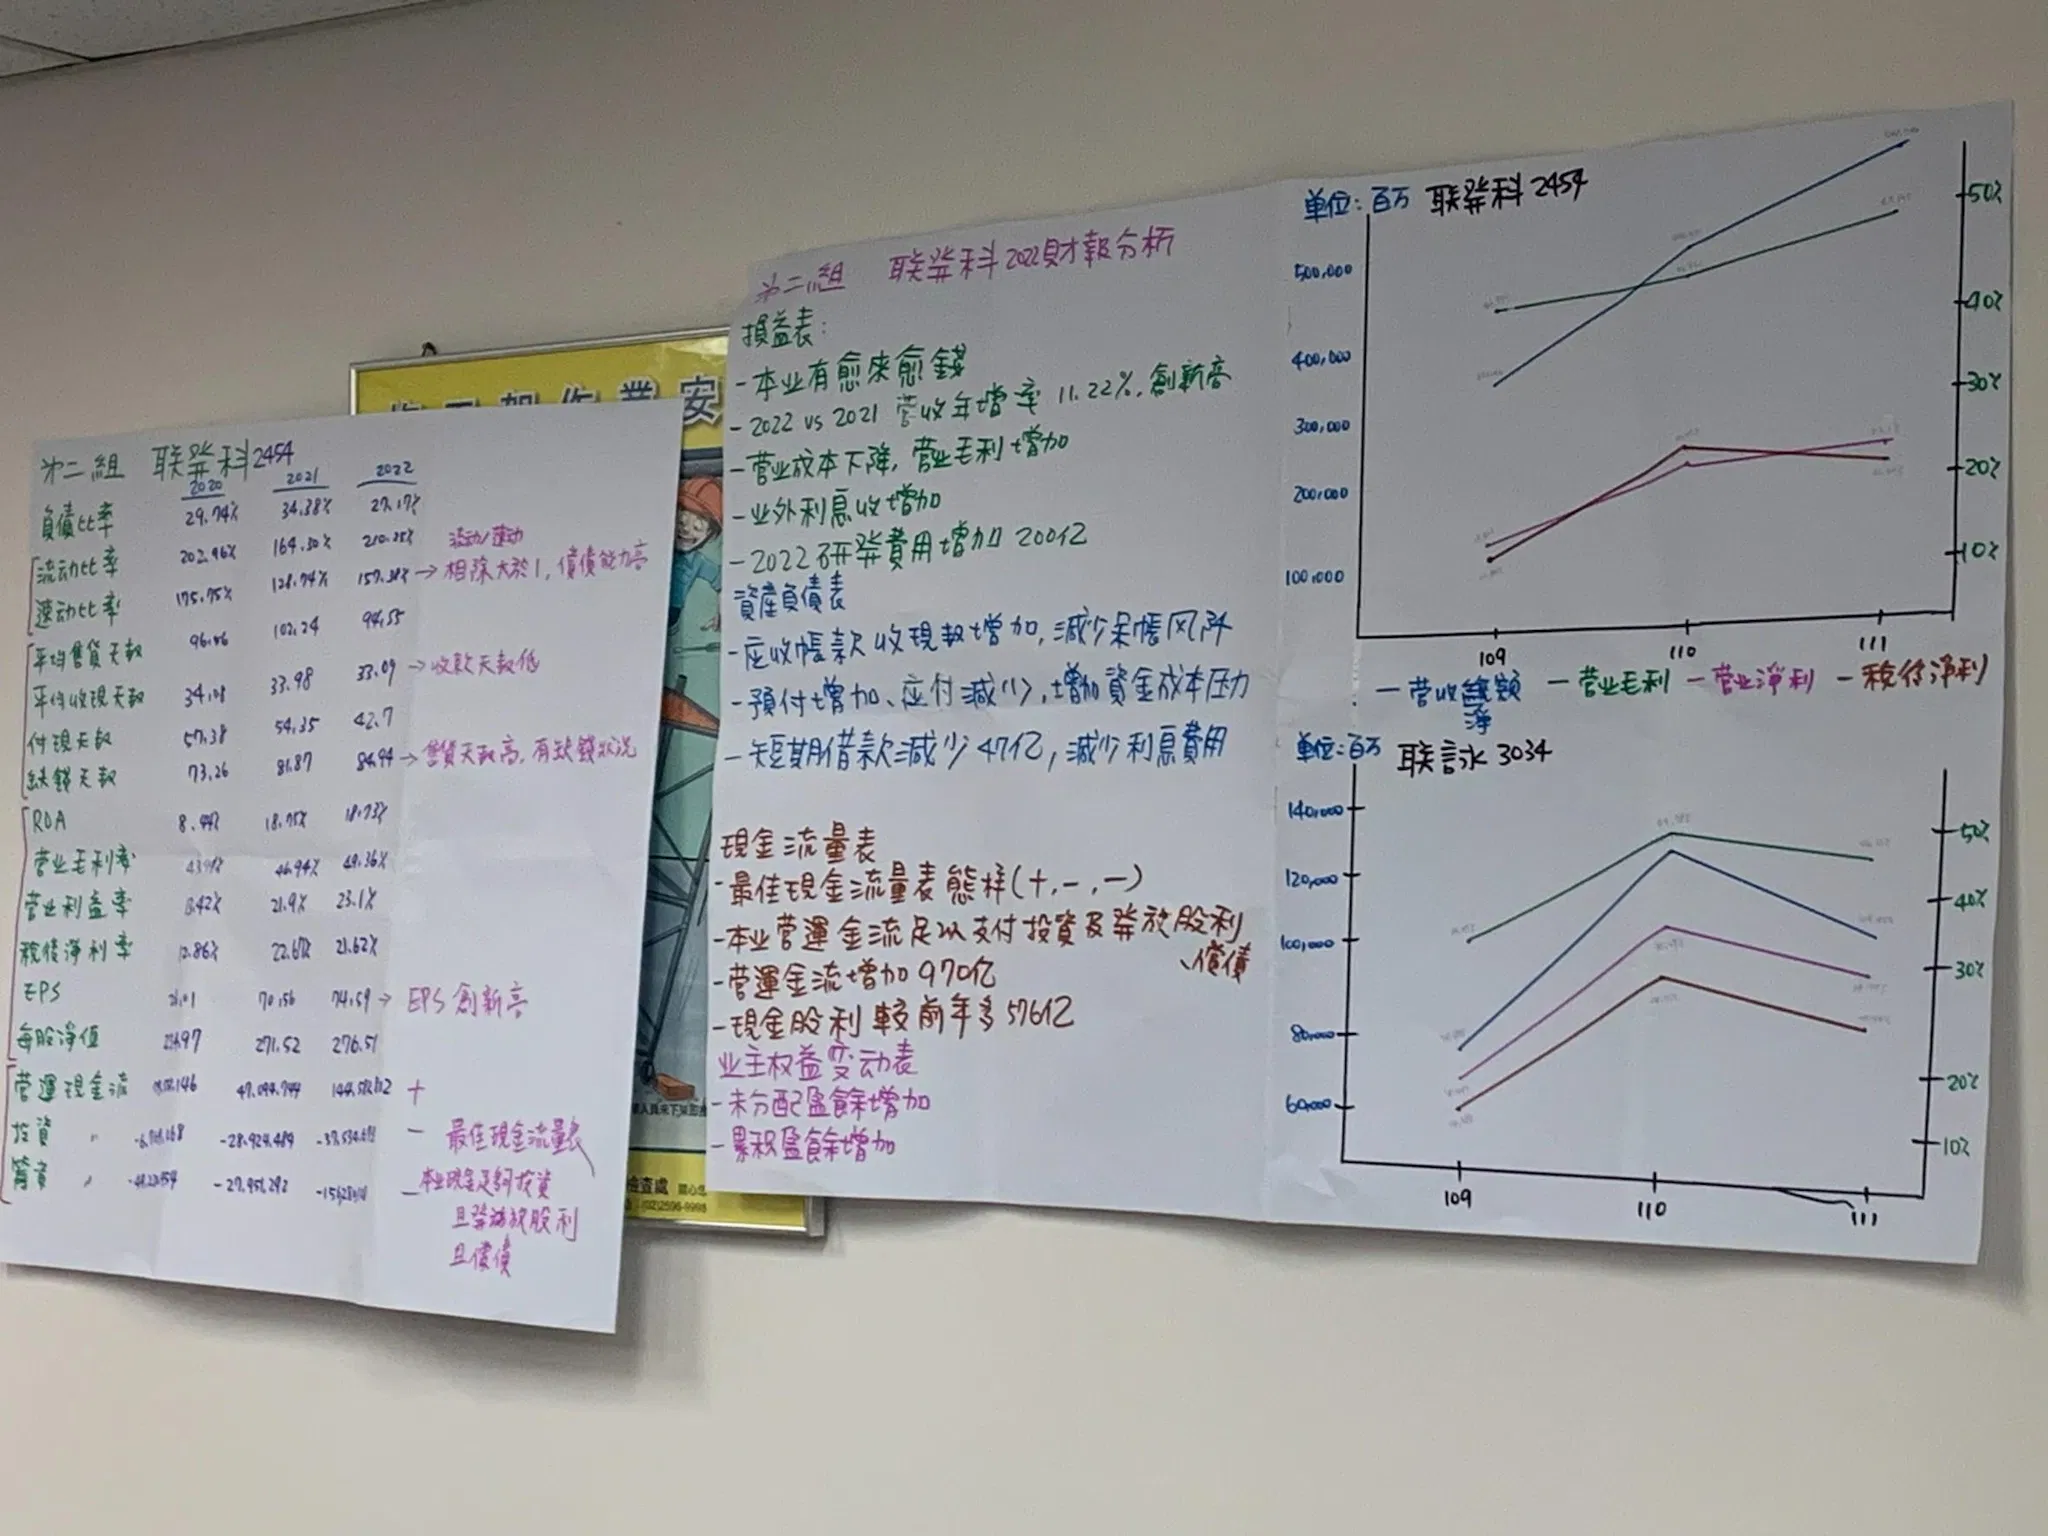 第二組 联発科2454
2020 2021 2022
負債比率 29.74% 34.38% 27.17%
流动比率 202.96% 164.30% 210.25%
流动/速动
速动比率 175.75% 128.74% 157.38% → 相除大於1, 償債能力高
平均售貨天数 96.06 102.24 94.55
平均收現天数 34.18 33.98 33.09 → 收款天数低
付現天数 57.38 54.35 42.7
缺錢天数 73.26 81.87 84.94 → 售貨天数高, 有缺錢狀況
ROA 8.44% 18.75% 18.73%
营业毛利率 46.94% 49.36%
营业利益率 13.42% 21.9% 23.1%
税後淨利率 12.86% 22.67% 21.62%
EPS 26.01 70.56 74.59 → EPS 創新高
每股淨值 271.52 276.51
营運現金流 +
投資 〃 -28,924,489 −
最佳現金流量表
籌資 〃 −
本业現金足夠投資
且発放股利
且償債
安
検查處
(02)2596-9998
第二組 联発科2022財報分析
損益表:
-本业有愈來愈錢
-2022 vs 2021 营收年增率 11.22%, 創新高
-营业成本下降, 营业毛利增加
-业外利息收增加
-2022 研発費用增加 200亿
資產負債表
-应收帳款收現数增加, 減少呆帳风险
-預付增加、应付減少, 增加資金成本压力
-短期借款減少 47亿, 減少利息費用
現金流量表
-最佳現金流量表態樣(+,-,-)
-本业营運金流足以支付投資及発放股利
、償債
-营運金流增加 970亿
-現金股利較前年多 576亿
业主权益变动表
-未分配盈餘增加
-累积盈餘增加
单位: 百万 联発科 2454
500,000
400,000
300,000
200,000
100,000
50%
40%
30%
20%
10%
109 110 111
-营收 額 -营业毛利 -营业淨利 -税後淨利
淨
单位: 百万 联詠 3034
140,000
120,000
100,000
80,000
60,000
50%
40%
30%
20%
10%
109 110 111